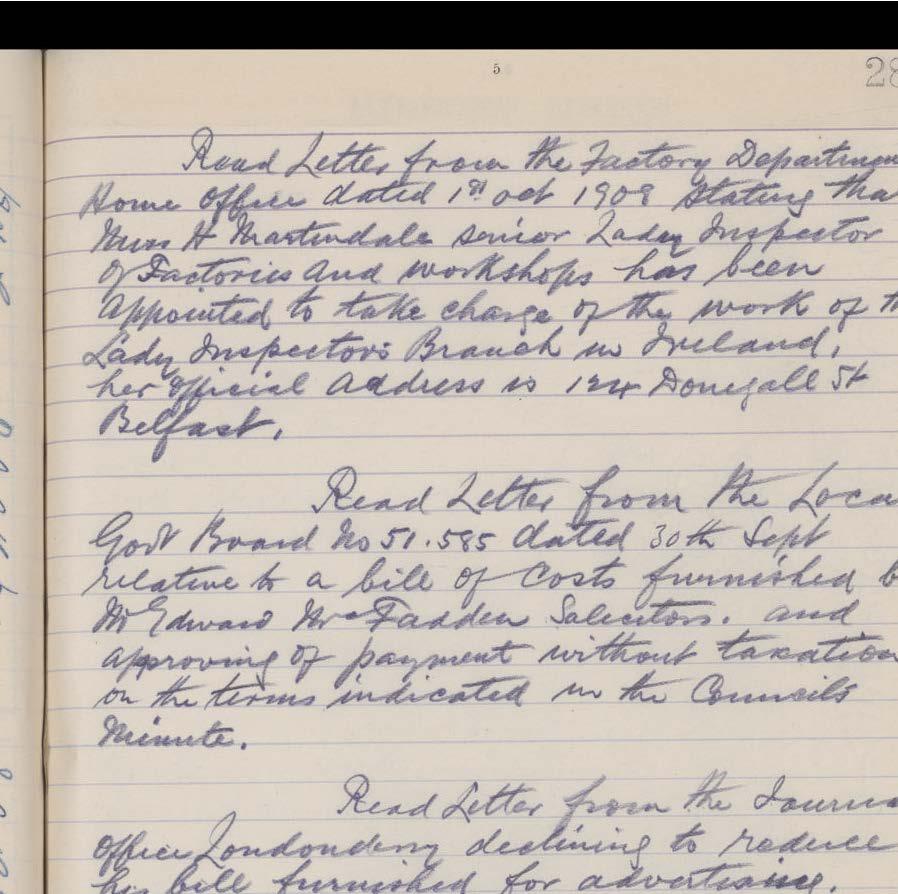 5
28
Read Letter from the Factory Departmen
Home Office dated 1st oct 1908 stating tha
Miss H Martindale senior Lady Inspector
of Factories and workshops has been
appointed to take charge of the work of th
Lady Inspectors Branch in Ireland,
her official address is 124 Donegall St
Belfast.
Read Letter from the Loca
Govt Board No 51.585 dated 30th Sept
relative to a bill of Costs furnished b
Mr Edward McFadden Solicitors. and
approving of payment without taxation
on the terms indicated in the Councils
Minute.
Read Letter from the Journa
Office Londonderry declining to reduce
his bill furnished for advertising.